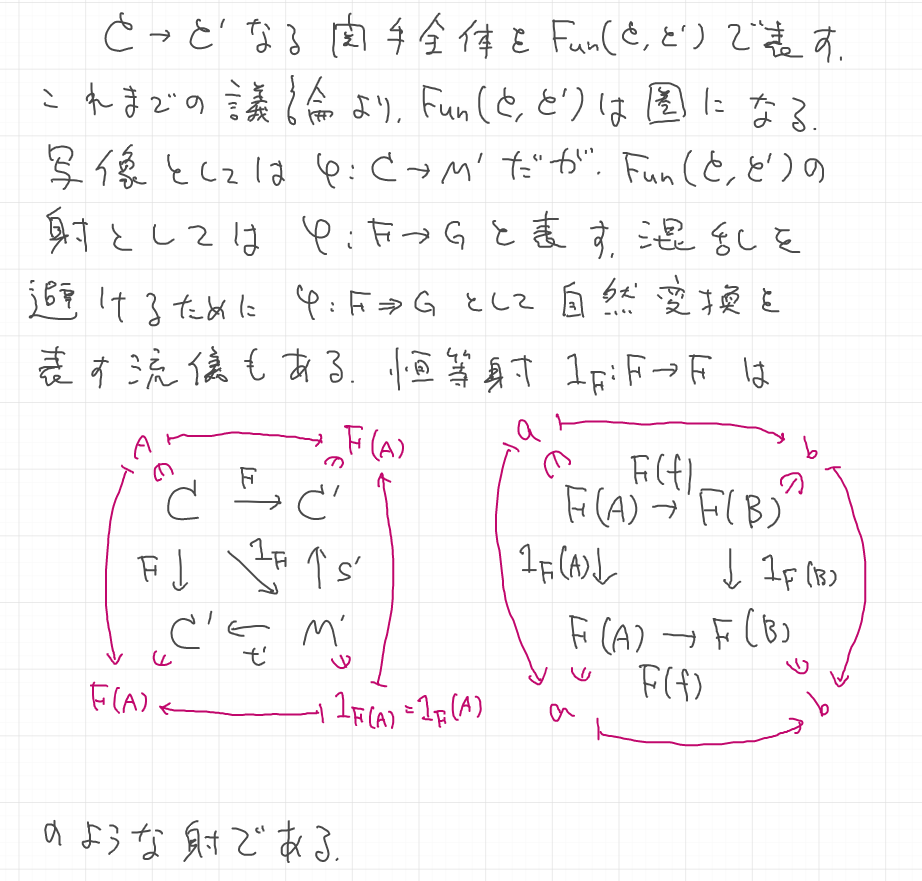 C → C' なる関手全体を Fun(C, C') で表す.
これまでの議論より, Fun(C, C') は圏になる.
写像としては φ: C → M' だが. Fun(C, C') の
射としては φ: F → G と表す. 混乱を
避けるために φ: F ⇒ G として自然変換を
表す流儀もある. 恒等射 1_F: F → F は
A ↦ F(A)
C F→ C'
F↓ 1_F↘ ↑s'
C' ←t' M'
F(A) ← 1_F(A) = 1_F(A)
a ↦ b
F(f)
F(A) → F(B)
1_F(A)↓ ↓1_F(B)
F(A) → F(B)
F(f)
a ↦ b
のような射である.